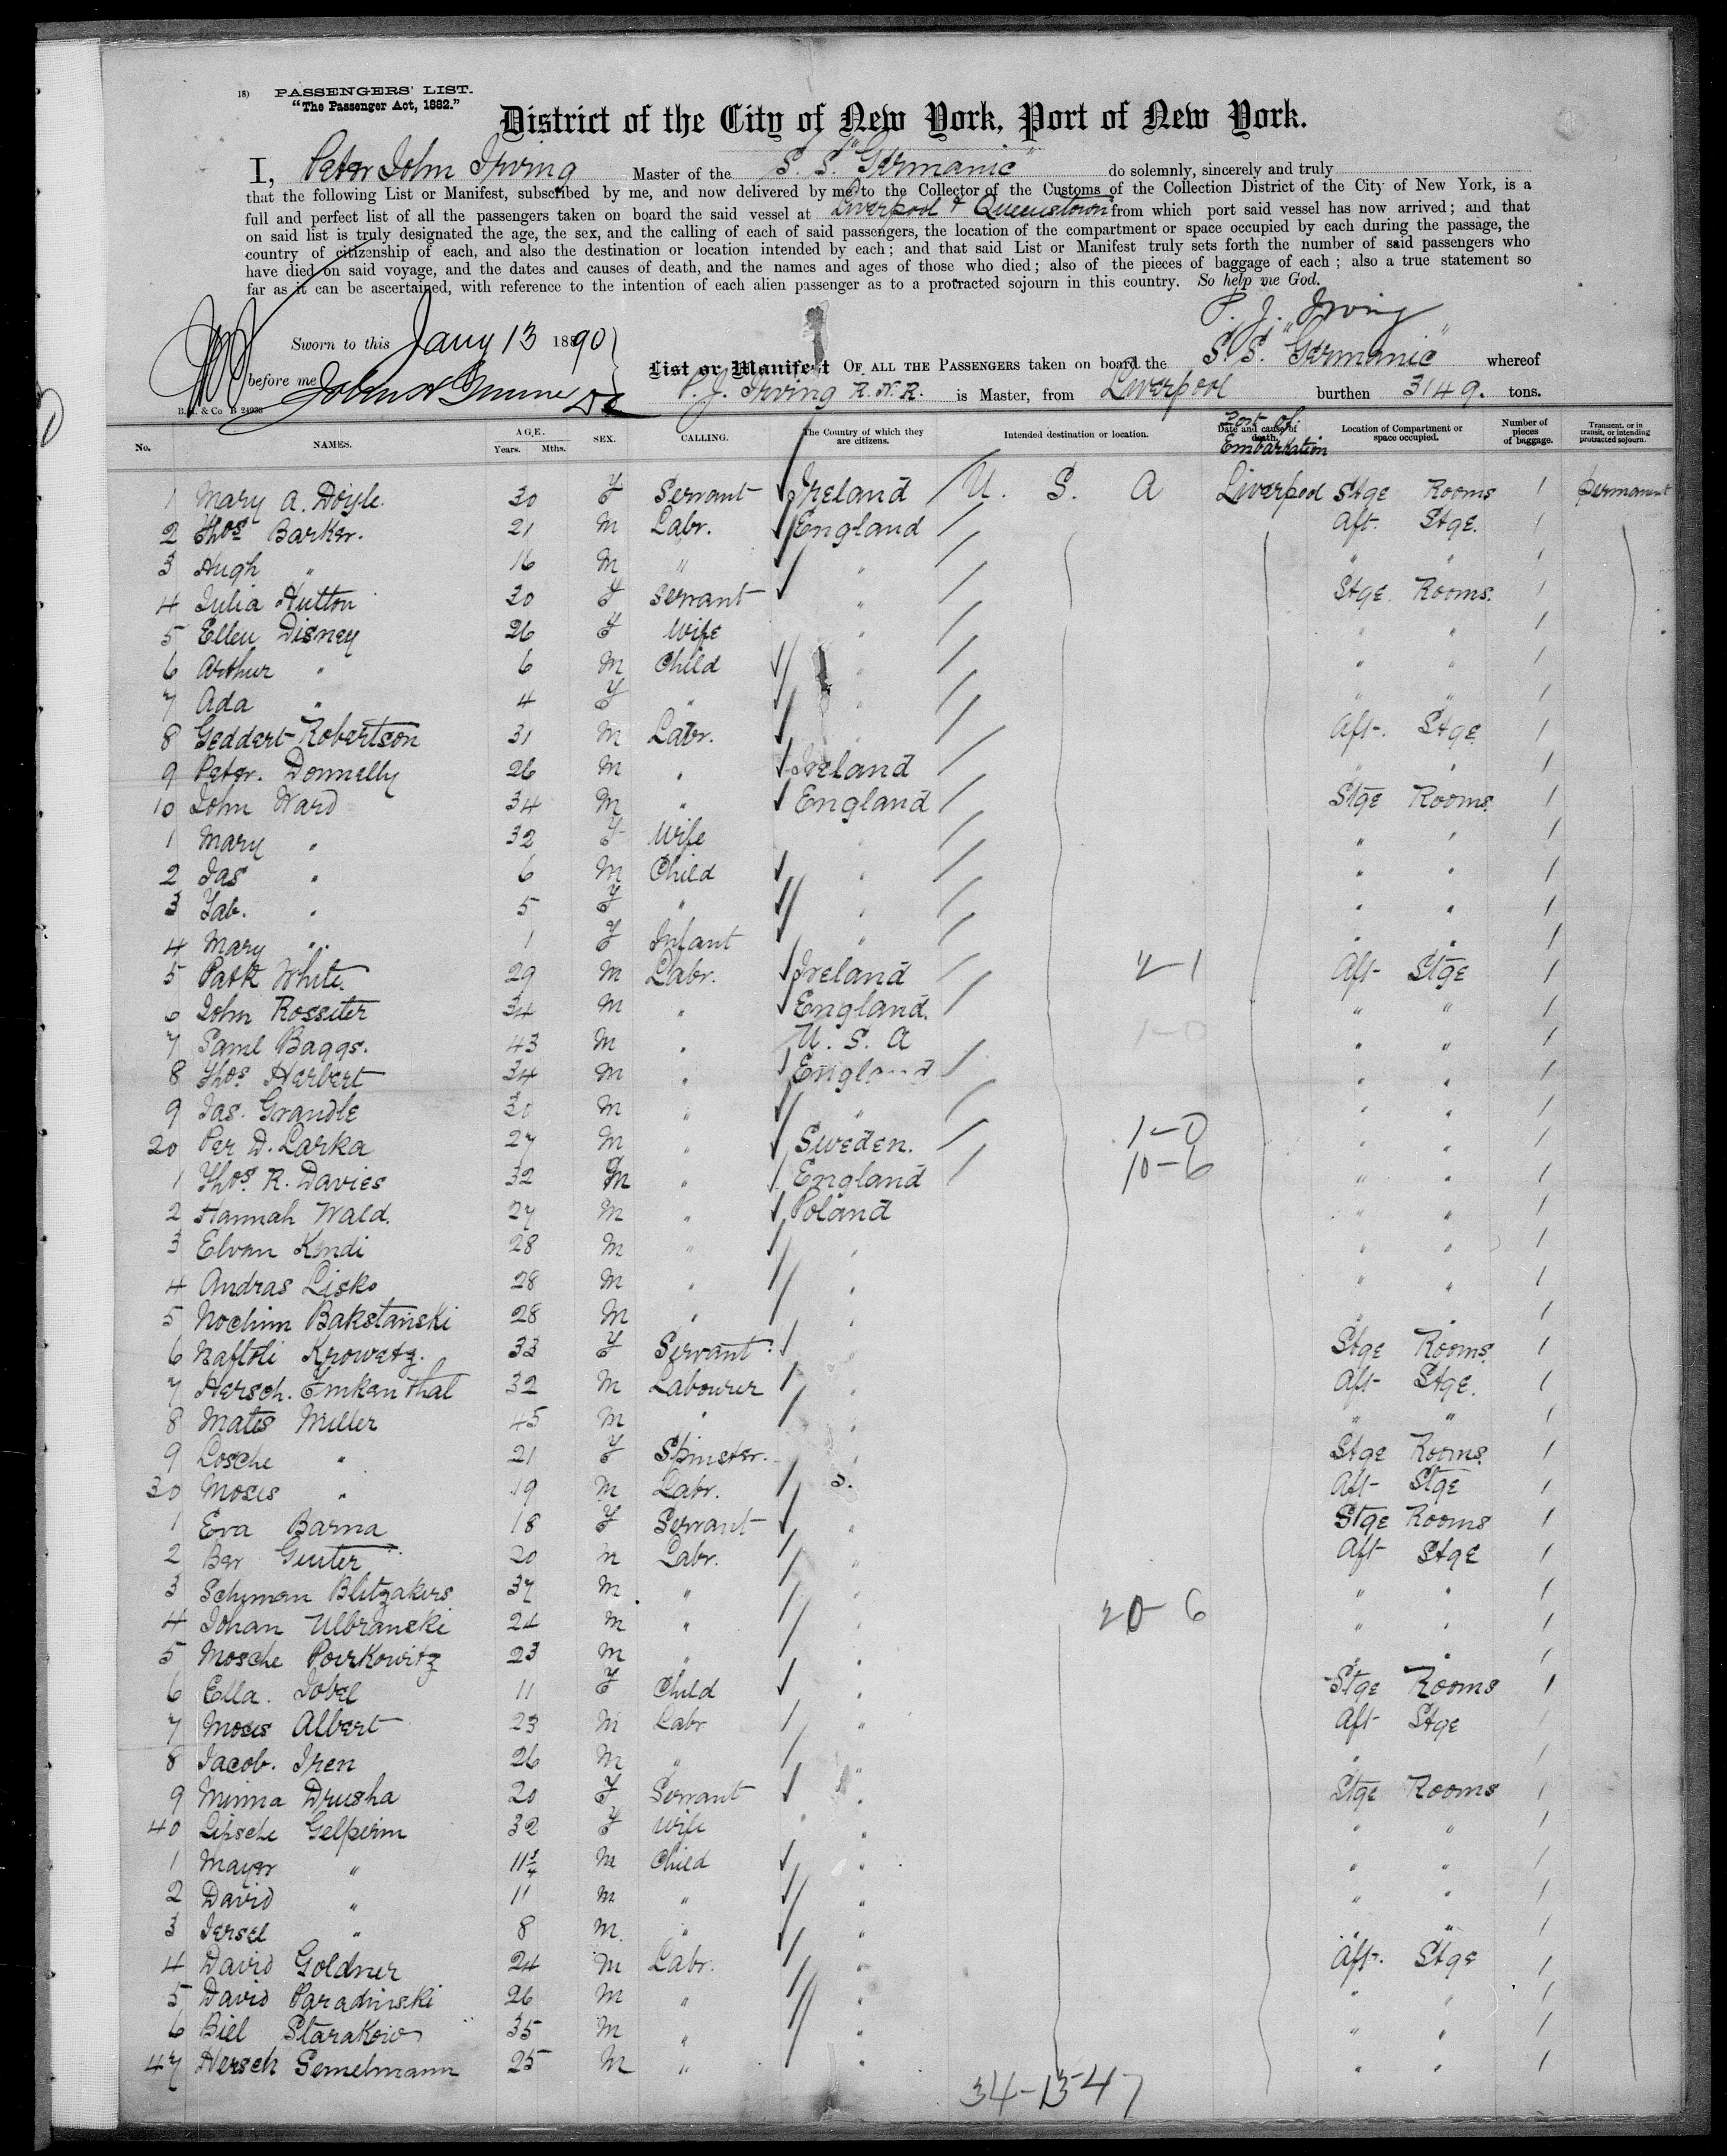 18) PASSENGERS' LIST.
"The Passenger Act, 1882."
District of the City of New York, Port of New York.
I, Peter John Irving Master of the S. S. "Germanic" do solemnly, sincerely and truly
that the following List or Manifest, subscribed by me, and now delivered by me to the Collector of the Customs of the Collection District of the City of New York, is a
full and perfect list of all the passengers taken on board the said vessel at Liverpool & Queenstown from which port said vessel has now arrived; and that
on said list is truly designated the age, the sex, and the calling of each of said passengers, the location of the compartment or space occupied by each during the passage, the
country of citizenship of each, and also the destination or location intended by each; and that said List or Manifest truly sets forth the number of said passengers who
have died on said voyage, and the dates and causes of death, and the names and ages of those who died; also of the pieces of baggage of each; also a true statement so
far as it can be ascertained, with reference to the intention of each alien passenger as to a protracted sojourn in this country. So help me God.
P. J. Irving
Sworn to this Jany 13 1890
before me
List or Manifest OF ALL THE PASSENGERS taken on board the S. S. "Germanic" whereof
P. J. Irving R.N.R. is Master, from Liverpool burthen 3149. tons.
No. NAMES. AGE. Years. Mths. SEX. CALLING. The Country of which they are citizens. Intended destination or location. Date and cause of death. Port of Embarkation Location of Compartment or space occupied. Number of pieces of baggage. Transient, or in transit, or intending protracted sojourn.
1 Mary A. Doyle 30 F Servant Ireland U. S. A Liverpool Stge Rooms 1 permanent
2 Thos Barker. 21 M Labr. England Aft. Stge. 1
3 Hugh " 16 M " " " " 1
4 Julia Hutton 30 F Servant " Stge Rooms. 1
5 Ellen Disney 26 F Wife " " " 1
6 Arthur " 6 M Child " " " 1
7 Ada " 4 F " " " " 1
8 Geddert Robertson 31 M Labr. Aft. Stge 1
9 Peter. Donnelly 26 M " Ireland " " 1
10 John Ward 34 M " England Stge Rooms. 1
1 Mary " 32 F Wife " " " 1
2 Jas " 6 M Child " " " 1
3 " 5 F " " " " 1
4 Mary " 1 F Infant " " " 1
5 Patk White. 29 M Labr. Ireland Aft Stge 1
6 John Rossiter 34 M " England. " " 1
7 Saml Baggs. 43 M " U. S. A 1-0 " " 1
8 Thos Herbert 34 M " England " " 1
9 Jas. Grandle 30 M " " " " 1
20 Per D. Larka 27 M " Sweden. 1-0 " " 1
1 Thos. R. Davies 32 M " England 10-6 " " 1
2 Hannah Wald. 27 M " Poland " " 1
3 Elvan Kendi 28 M " " " " 1
4 Andras Lisko 28 M " " " " 1
5 Nochim Bakstanski 28 M " " " " 1
6 Naftoli Krowetz. 33 F Servant " Stge Rooms. 1
7 Hersch. Emkenthal 32 M Labourer " Aft Stge. 1
8 Mates Miller 45 M " " " " 1
9 Losche " 21 F Spinster. " Stge Rooms. 1
30 Moses " 19 M Labr. Aft Stge 1
1 Eva Barna 18 F Servant " Stge Rooms 1
2 Ber Guiter 20 M Labr. " Aft Stge 1
3 Schyman Blitzakers 37 M " " " 1
4 Johan Ulbranski 24 M " " 20-6 " " 1
5 Mosche Poirkowitz 23 M " " " 1
6 Ella. Jobel 11 F Child " Stge Rooms 1
7 Moses Albert 23 M Labr " Aft Stge 1
8 Jacob. Iren 26 M " " " 1
9 Minna Drusha 20 F Servant " Stge Rooms 1
40 Lipsche Gelperin 32 F Wife " " " 1
1 Mayer " 11 3/4 M Child " " " 1
2 David " 11 M " " " " 1
3 Jersel " 8 M. " " " " 1
4 David Goldner 24 M Labr. " Aft. Stge 1
5 David Paradinski 26 M " " " " 1
6 Biel Starakow 35 M " " " " 1
47 Hersch Semelmann 25 M " " " " 1
34-13-47